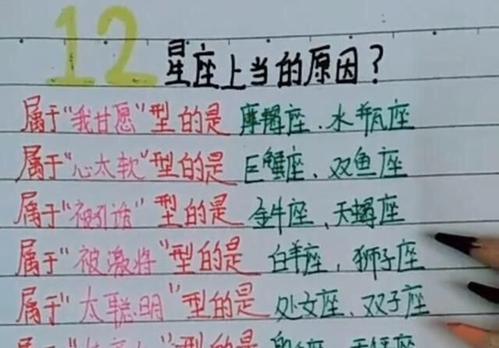 12星座上当的原因?
属于“我甘愿”型的是 摩羯座、水瓶座
属于“心太软”型的是 巨蟹座、双鱼座
属于“被引诱”型的是 金牛座、天蝎座
属于“被激将”型的是 白羊座，狮子座
属于“太聪明”型的是 处女座、双子座